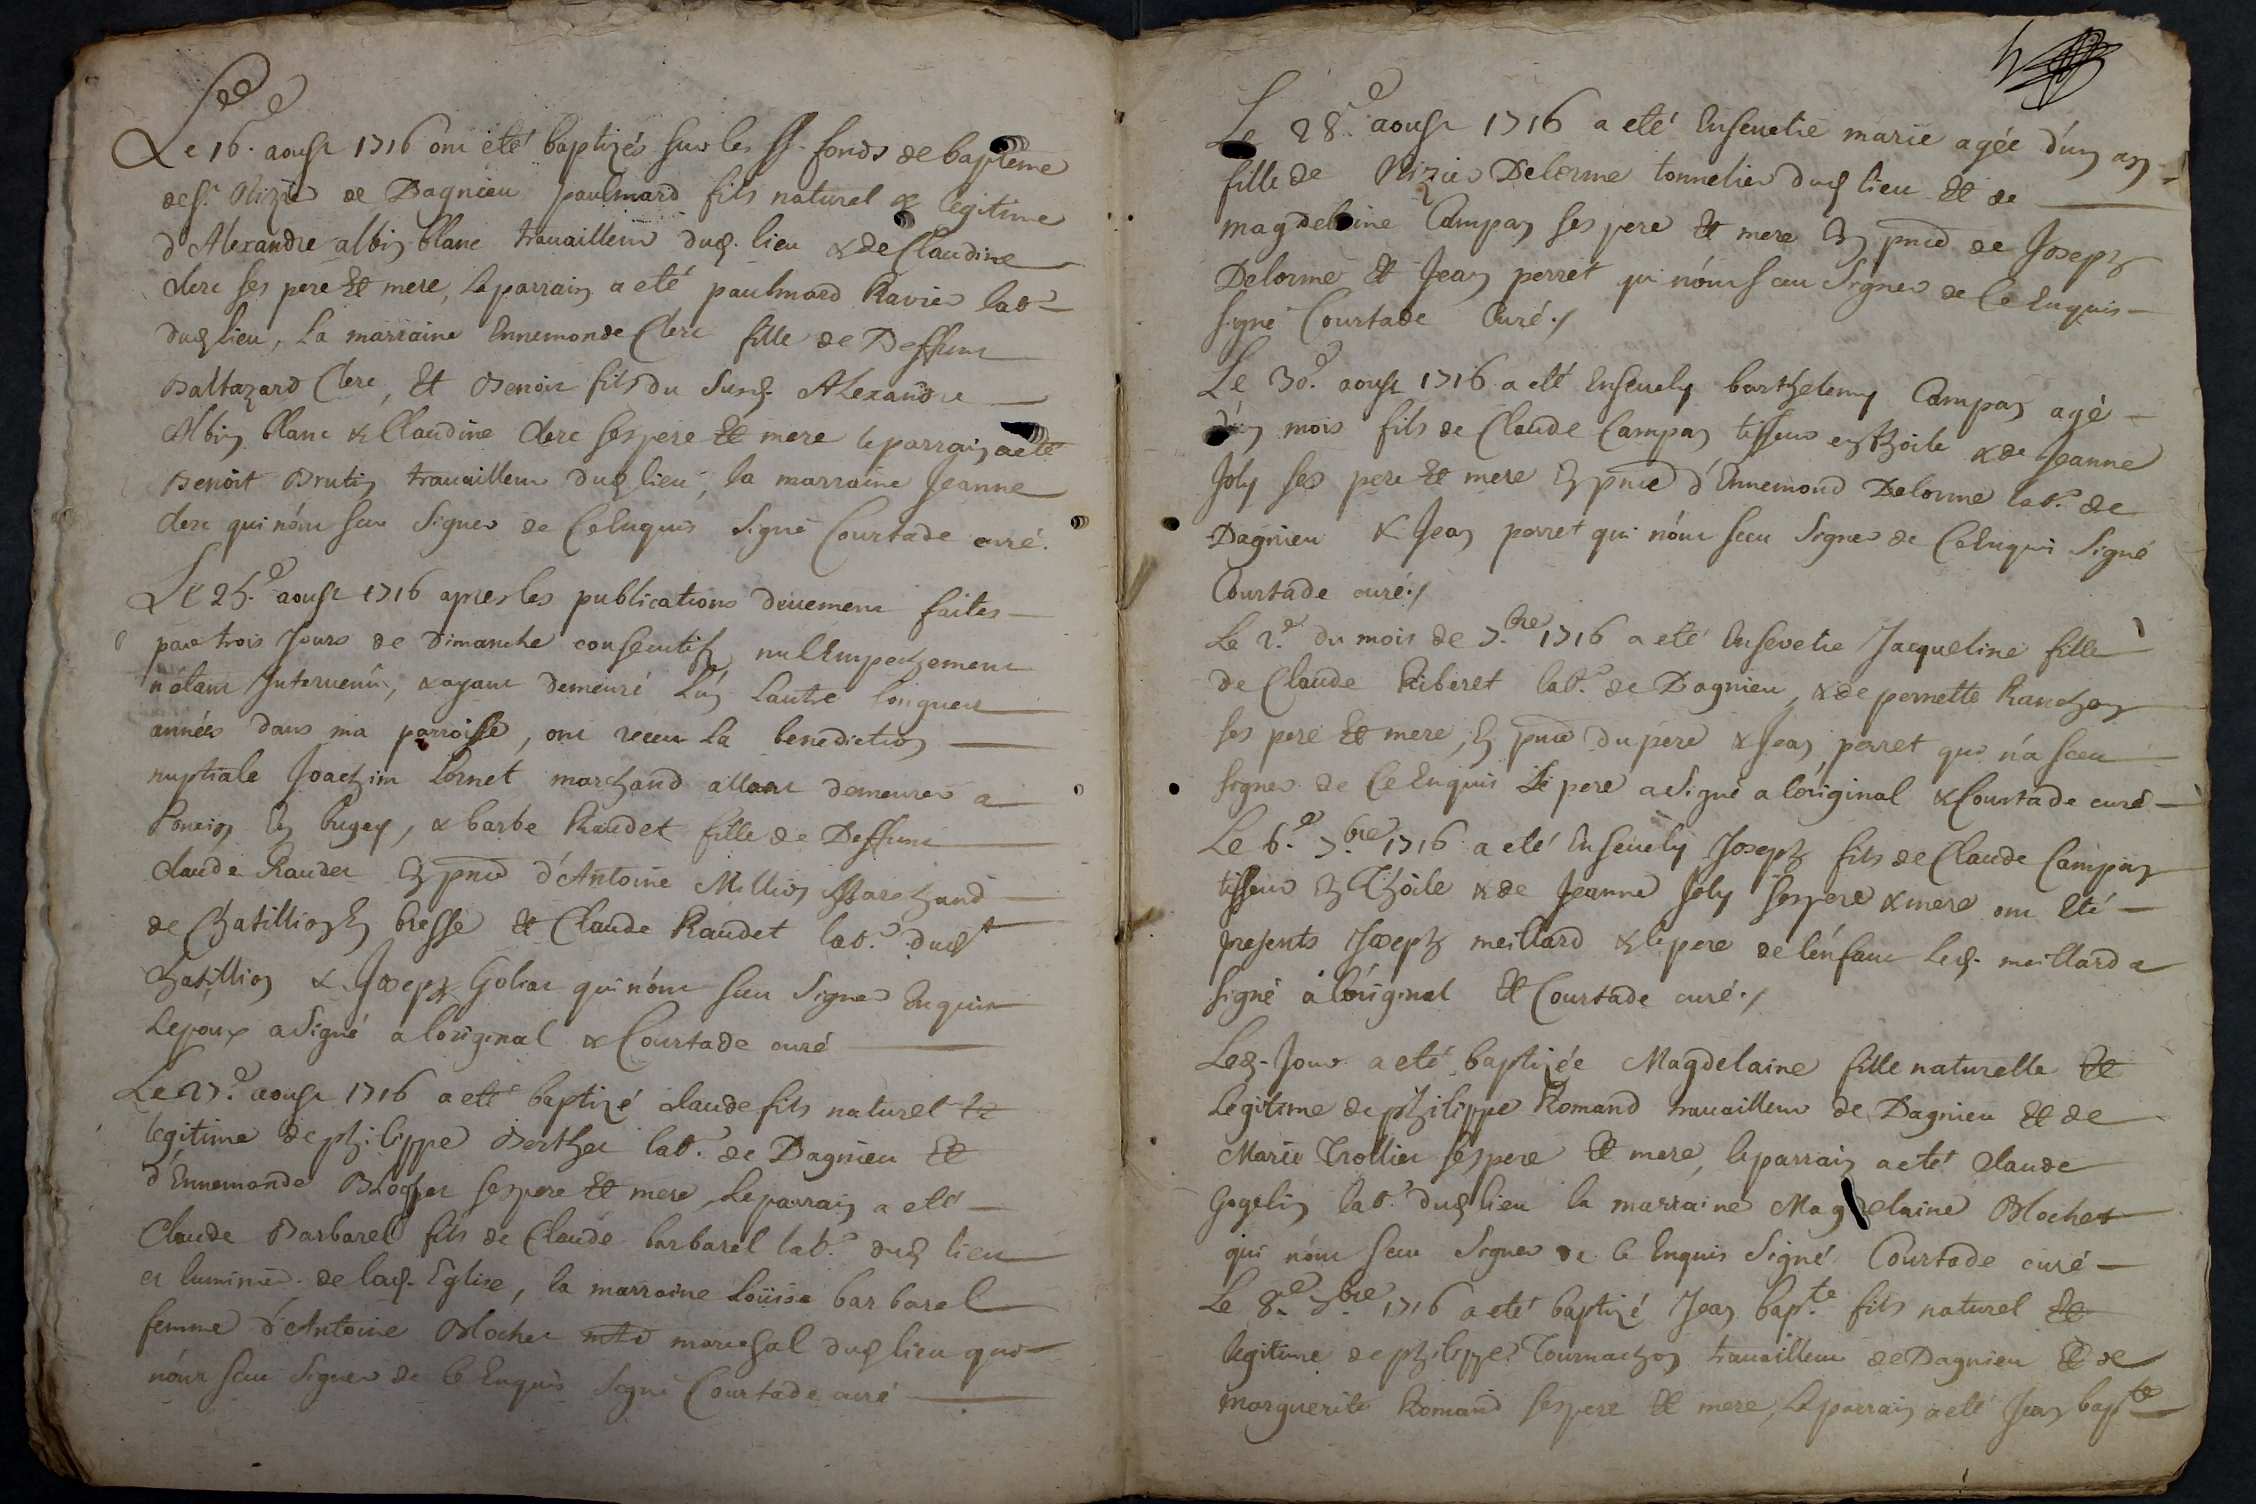 Le 16.e aoust 1716 ont eté baptizés sur les st. fonds de bapteme
de st. Nizier de Dagnieu paulmard fils naturel & legitime
d'Alexandre albin blanc travailleur dud. lieu & de Claudine
clerc ses pere Et mere, le parrain a eté paulmard Ravier lab.r
dud lieu, la marraine Ennemonde Clerc fille de Deffunt
Baltazard Clerc, Et Benoit fils du susd. Alexandre
Albin blanc & Claudine clerc ses pere Et mere le parrain a eté
Benoit Brutin travailleur dud lieu, la marraine Jeanne
clerc qui n'ont sceu signer de Ce Enquis signé Courtade curé.
Le 25.e aoust 1716 apres les publications deuement faites
par trois Jours de dimanche consecutifs, nul Empechement
n'étant Intervenû, & ayant demeuré l'un l'autre longues
années dans ma parroisse, ont receu la benediction
nuptiale Joachim Cornet marchand allant demeurer a
Poncin En bugey, & barbe Raudet fille de Deffunt
claude Raudet En pnce d'Antoine Million Marchand
de Chatillion En bresse Et Claude Raudet lab.r dud.t
Chatillion & Joseph Goliat qui n'ont sceu signer Enquis
Lepoux a signé a l'original & Courtade curé
Le 27.e aoust 1716 a eté baptizé claude fils naturel Et
legitime de philippe Berthet lab.r de Dagnieu Et
d'Ennemonde Blochet ses pere Et mere, le parrain a eté
Claude Barbarel fils de Claude barbarel lab.r dud lieu
et luminier de lad. Eglise, la marraine Loüise barbarel
femme d'Antoine Blochet marechal dud lieu qui
n'ont sceu signer de ce Enquis signé Courtade curé
Le 28.e aoust 1716 a eté Ensevelie marie agée d'un an
fille de Nizier Delorme tonnelier dud lieu Et de
magdeleine Campan ses pere Et mere En pnce de Joseph
Delorme Et Jean perret qui n'ont sceu signer de Ce Enquis
signé Courtade Curé./
Le 30.e aoust 1716 a eté Ensevely barthelemy Campan agé
d'un mois fils de Claude Campan tisseur en thoile & de Jeanne
Joly ses pere Et mere En pnce d'Ennemond Delorme lab.r de
Dagnieu & Jean perret qui n'ont sceu signer de Ce Enqui signé
Courtade curé./
Le 2.e du mois de 7.bre 1716 a eté Ensevelie Jacqueline fille
de Claude Riberet lab.r de Dagnieu, & de pernette Ranchon
ses pere Et mere, En pnce du pere & Jean perret qui n'a sceu
signer de Ce Enquis Le pere a signé a l'original & Courtade curé
Le 6.e 7.bre 1716 a eté Ensevely Joseph fils de Claude Campan
tisseur En Thoile & de Jeanne Joly ses pere & mere ont Eté
presents Joseph meillard & le pere de l'enfant Led. meillard a
signé a l'original Et Courtade curé./
Led. Jour a eté baptizée Magdelaine fille naturelle Et
Legitime de philippe Romand travailleur de Dagnieu Et de
Marie Trollier ses pere Et mere, le parrain a eté Claude
Gogelin lab.r dud lieu la marraine Magdelaine Blochet
qui n'ont sceu signer de ce Enquis signé Courtade curé
Le 8.e 7.bre 1716 a eté baptizé Jean bap.te fils naturel Et
legitime de philippe Tournachon travailleur de Dagnieu Et de
marguerite Romand ses pere Et mere, Le parrain a eté Jean bap.te